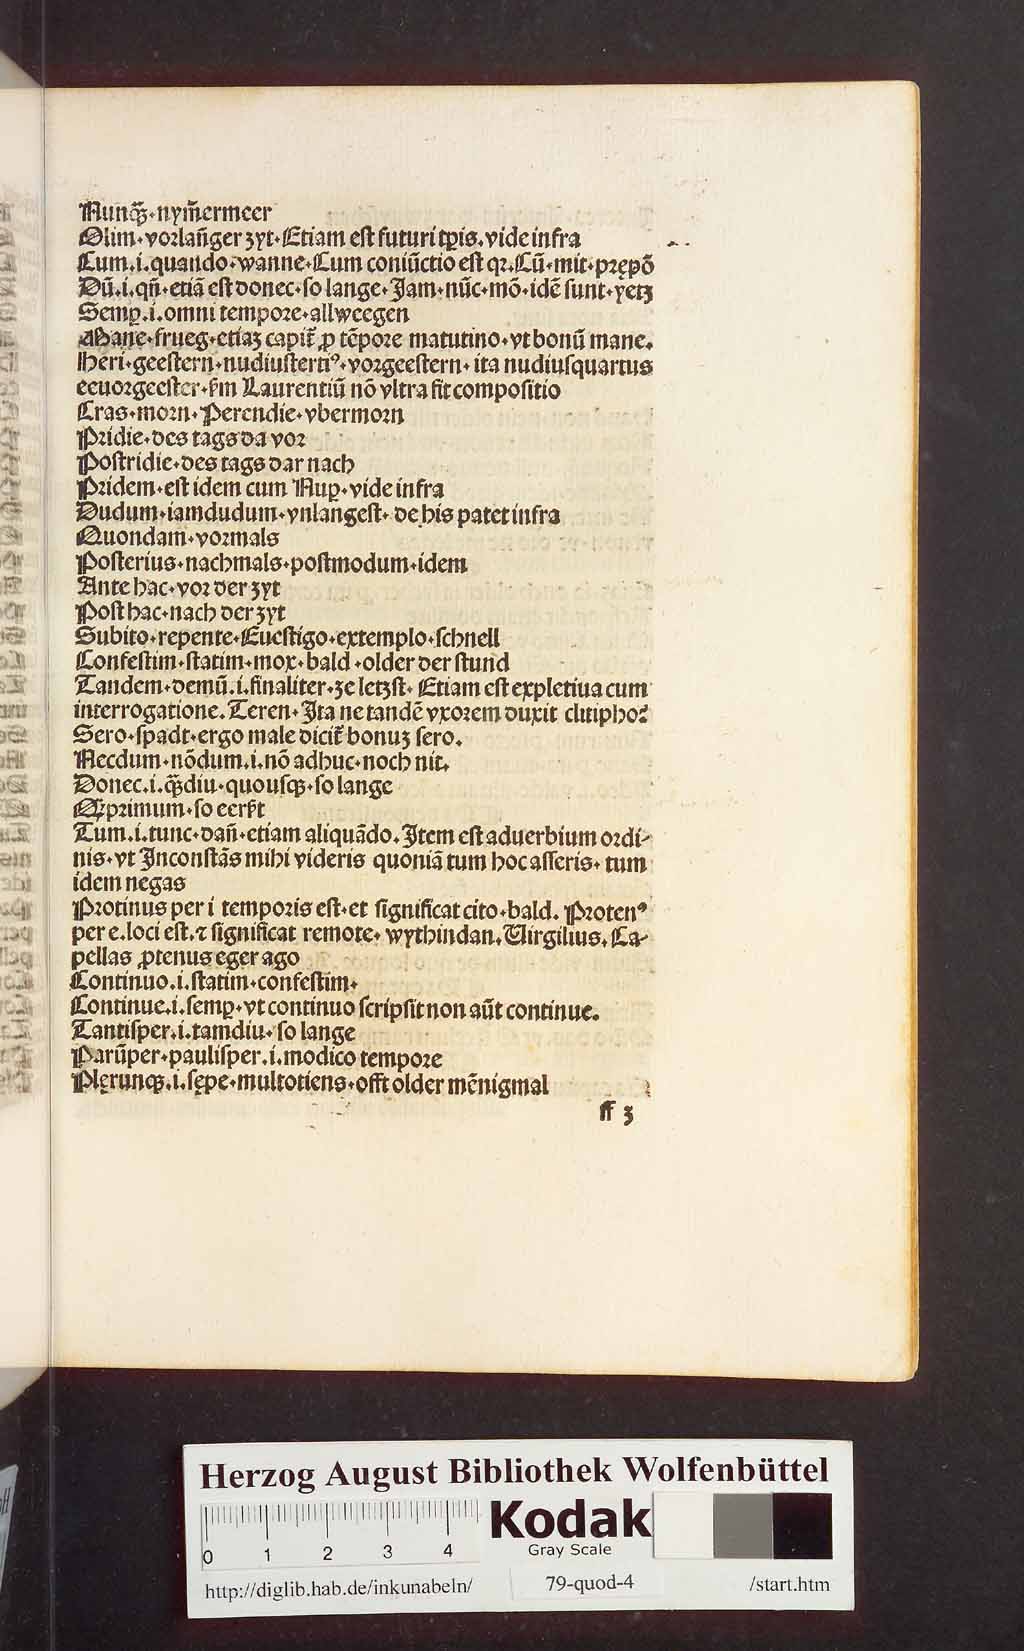 Nunq̃ꝫ · nym̃ermeer
Olim · vorlañger zyt · Etiam est futuri tp̱is . vide infra
Cum . i . quando · wanne · Cum coniũctio est qꝛ . Cũ · mit · prępõ
Dũ . i . qñ · etiã est donec · so lange · Jam · nũc · mõ · idẽ sunt · yetz
Semp̱ . i . omni tempore · allweegen
Mane · frueg · etiaꝫ capit̃ ꝓ tẽpore matutino · vt bonũ mane .
Heri · geestern · nudiusterti⁹ · vorgeestern · ita nudiusquartus
eeuorgeester · f̃m Laurentiũ nõ vltra fit compositio
Cras · morn · Perendie · vbermorn
Pridie · des tags da vor
Postridie · des tags dar nach
Pridem · est idem cum Nup̱ · vide infra
Dudum · iamdudum · vnlangest · de his patet infra
Quondam · vormals
Posterius · nachmals · postmodum · idem
Ante hac · vor der zyt
Post hac · nach der zyt
Subito · repente · Euestigo · extemplo · schnell
Confestim · statim · mox · bald · older der stund
Tandem · demũ . i . finaliter · ze letzst · Etiam est expletiua cum
interrogatione . Teren · Ita ne tandẽ vxorem duxit clitipho?
Sero · spadt · ergo male dicit̃ bonuꝫ sero .
Necdum · nõdum . i . nõ adhuc · noch nit .
Donec . i . q̃ꝫdiu · quousqꝫ · so lange
Q̃ꝫprimum · so eerst
Tum . i . tunc · dañ · etiam aliquãdo . Item est aduerbium ordi-
nis · vt Inconstãs mihi videris quoniã tum hoc asseris · tum
idem negas
Protinus per i temporis est · et significat cito · bald . Proten⁹
per e . loci est . ⁊ significat remote · wythindan . Virgilius . Ca-
pellas ꝓtenus eger ago
Continuo . i . statim · confestim ·
Continue . i . semp̱ · vt continuo scripsit non aũt continue .
Tantisper . i . tamdiu · so lange
Parũper · paulisper . i . modico tempore
Plęrunqꝫ . i . sępe · multotiens · offt older mẽnigmal
ff 3
Herzog August Bibliothek Wolfenbüttel
0 1 2 3 4
Kodak
Gray Scale
http://diglib.hab.de/inkunabeln/ 79-quod-4 /start.htm